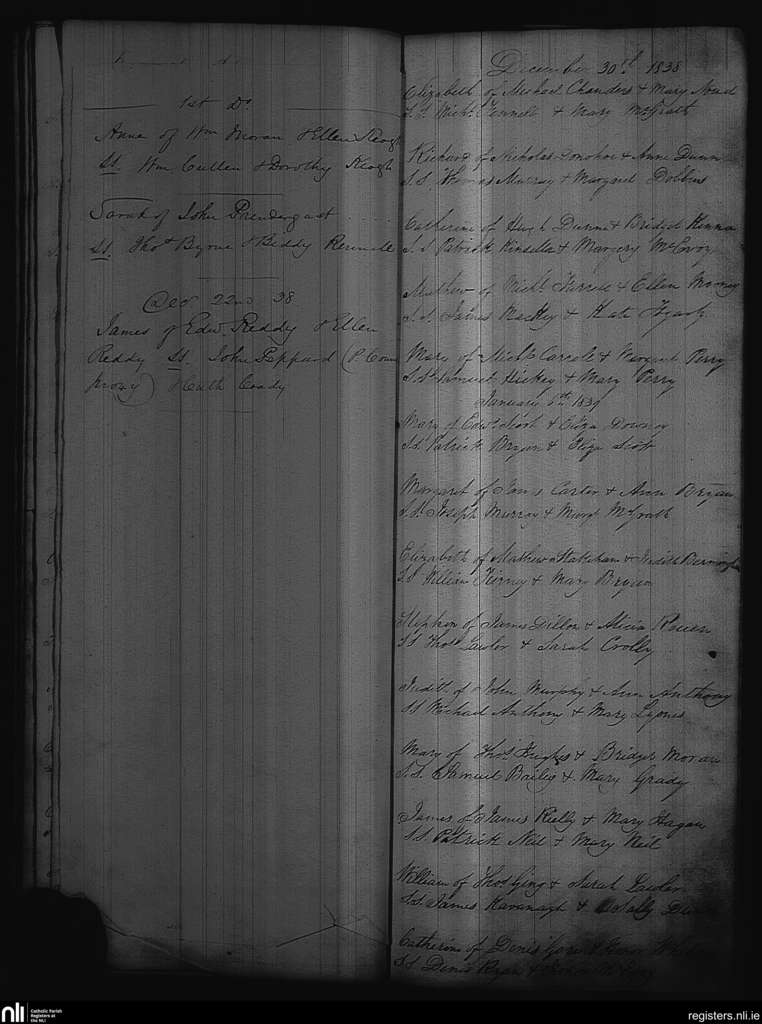 1st Do
Anne of Wm Moran & Ellen Keogh
SS. Wm Cullen & Dorothy Keogh
Sarah of John Prendergast
SS. Thos Byrne & Biddy
Dec 22nd 38
James of Edwd Reddy & Ellen
Reddy SS. John Peppard (P. Coun
proxy) & Cath Coady
December 30th 1838
Elizabeth of Michael Chanders & Mary
S.S. Michl Fennell & Mary McGratt
Richard of Nicholas Donohoe & Anne Dunn
S.S. Thomas Murray & Margaret Dobbins
Catherine of Hugh Dunne & Bridget Kenna
S.S Patrick Kinsella & Margery McEvoy
Mathew of Michl & Ellen
S.S. James Mackey & Kate
Mary of Michl Carcole & Margaret Perry
S.S. Samuel Hickey & Mary Perry
January 6th 1839
Mary of Edwd Scott & Eliza Downey
S.S. Patrick Bryan & Eliza Scott
Margaret of James Carter & Ann Bryan
S.S. Joseph Murray & Margt McGrath
Elizabeth of Mathew & Judith
SS William Tierney & Mary Bryan
Stephen of James Dillon & Alicia
SS Thos Lawlor & Sarah Crolly
Judith of John Murphy & Ann Anthony
SS Michael Anthony & Mary Lyons
Mary of Thos Hughes & Bridget Moran
S.S. Samuel Bailey & Mary Grady
James of James Rielly & Mary Hagan
SS. Patrick Neil & Mary Neil
William of Thos Ging & Sarah Lawlor
S.S. James Kavanagh & Sally
Catherine of Denis &
SS Denis Ryan &
nli
Catholic Parish
Registers at
the NLI
registers.nli.ie